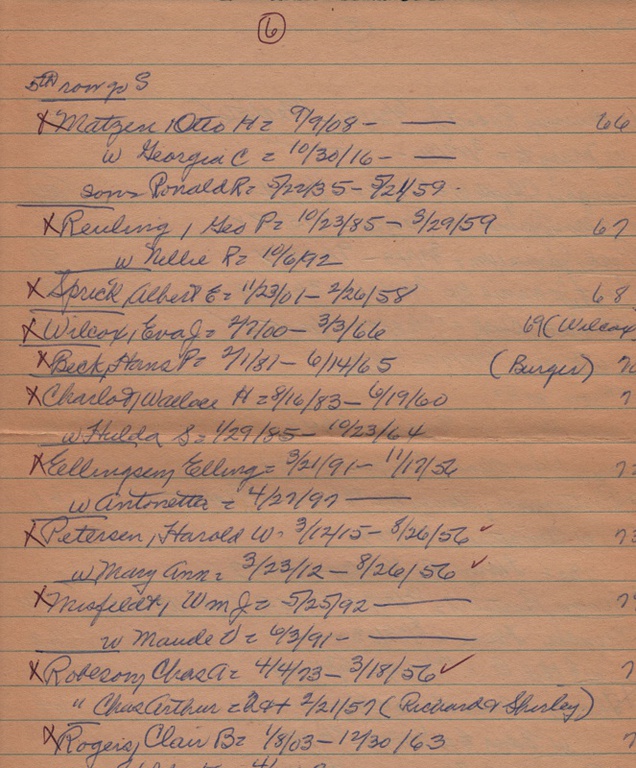 6
5th row S
X Matzen, Otto H = 9/9/08 - — 66
w Georgia C = 10/30/16 - —
sons Ronald R = 5/22/35 - 5/21/59.
X Reuling, Geo P = 10/23/85 - 3/29/59 67
w Nellie R = 10/6/92
X Sprick Albert E = 11/23/01 - 2/26/58 68
X Wilcox, Eva J = 2/7/00 - 3/3/66 69 (Wilcox)
X Beck, Hans P = 2/1/81 - 6/14/65 (Burger) 70
X Charlot, Wallace H = 8/16/83 - 6/19/60 7
w Hulda S = 1/29/85 - 10/23/64
X Eellingsen, Elling = 3/21/91 - 11/17/56 7
w Antonetta = 4/27/97 —
X Petersen, Harold W = 3/12/15 - 8/26/56 ✓ 73
w Mary Ann = 3/23/12 - 8/26/56 ✓
X Misfeldt, Wm J = 5/25/92 — 7
w Maude V = 6/3/91 - —
X Robeson, Chas A = 4/4/73 - 3/18/56 ✓ 7
" Chas Arthur = 2/21/57 (Richard & Shirley)
X Rogers, Clair B = 1/8/03 - 12/30/63 7